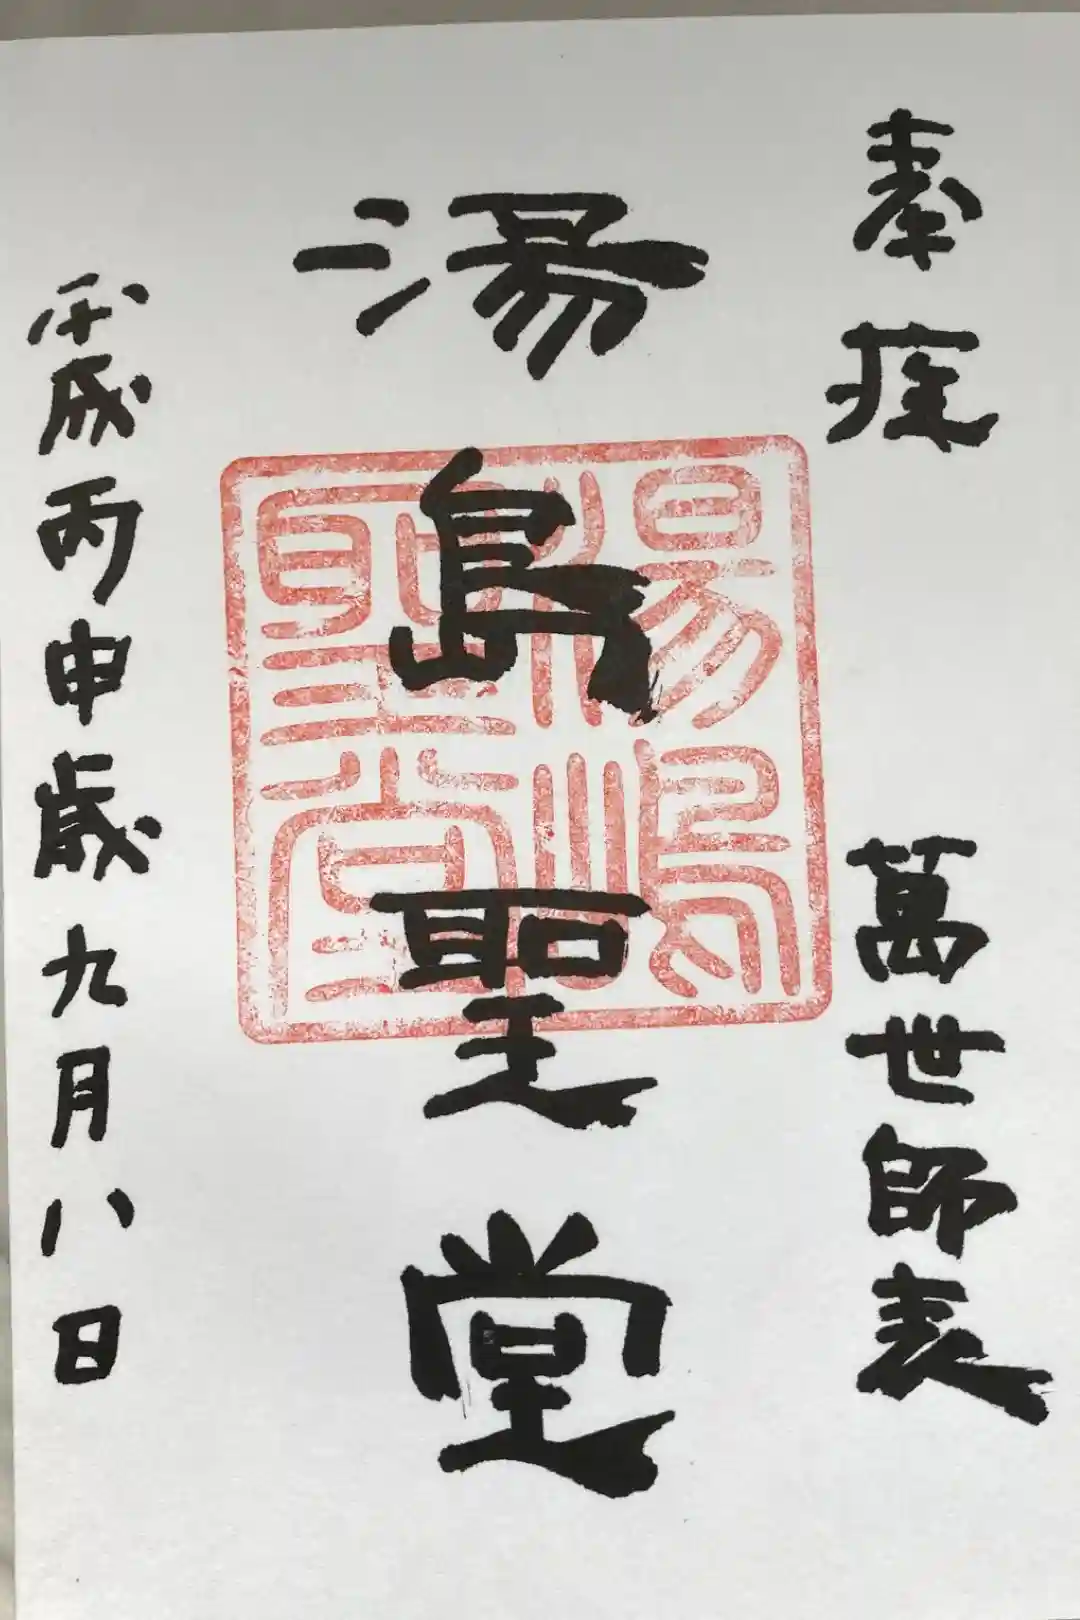 奉拝 萬世師表
湯島聖堂
平成丙申歳九月八日
湯嶋
聖堂